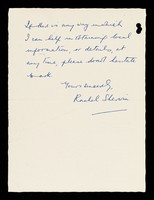 If there is any way in which
I can help in obtaining local
information, or details, at
any time, please don't hesitate
to ask
Yours sincerely,
Rachel